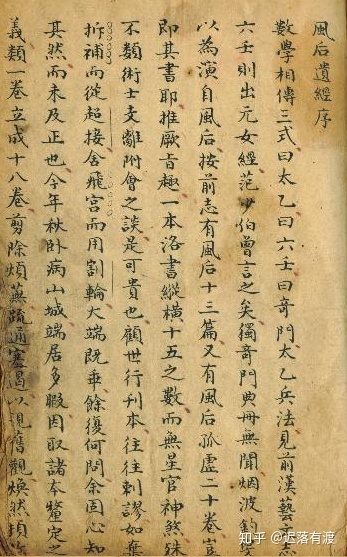 風后遺經序
數學相傳三式曰太乙曰六壬曰奇門太乙兵法見前漢藝
六壬則出元女經范少伯曾言之矣獨奇門典冊無聞烟波釣
以為演自風后按前志有風后十三篇又有風后孤虛二十卷豈
即其書耶推厥旨趣一本洛書縱橫十五之數而無星官神煞殊
不類術士支離附會之談是可貴也顧世行刊本往往剌謬如葉
拆補而從超接舍飛宮而用割輪大端既乖餘復何問余固心知
其然而未及正也今年秋卧病山城端居多暇因取諸本釐定之
義類一卷立成十八卷剪除煩蕪疏通塞遏以視舊觀煥然
知乎 @迟落有渡